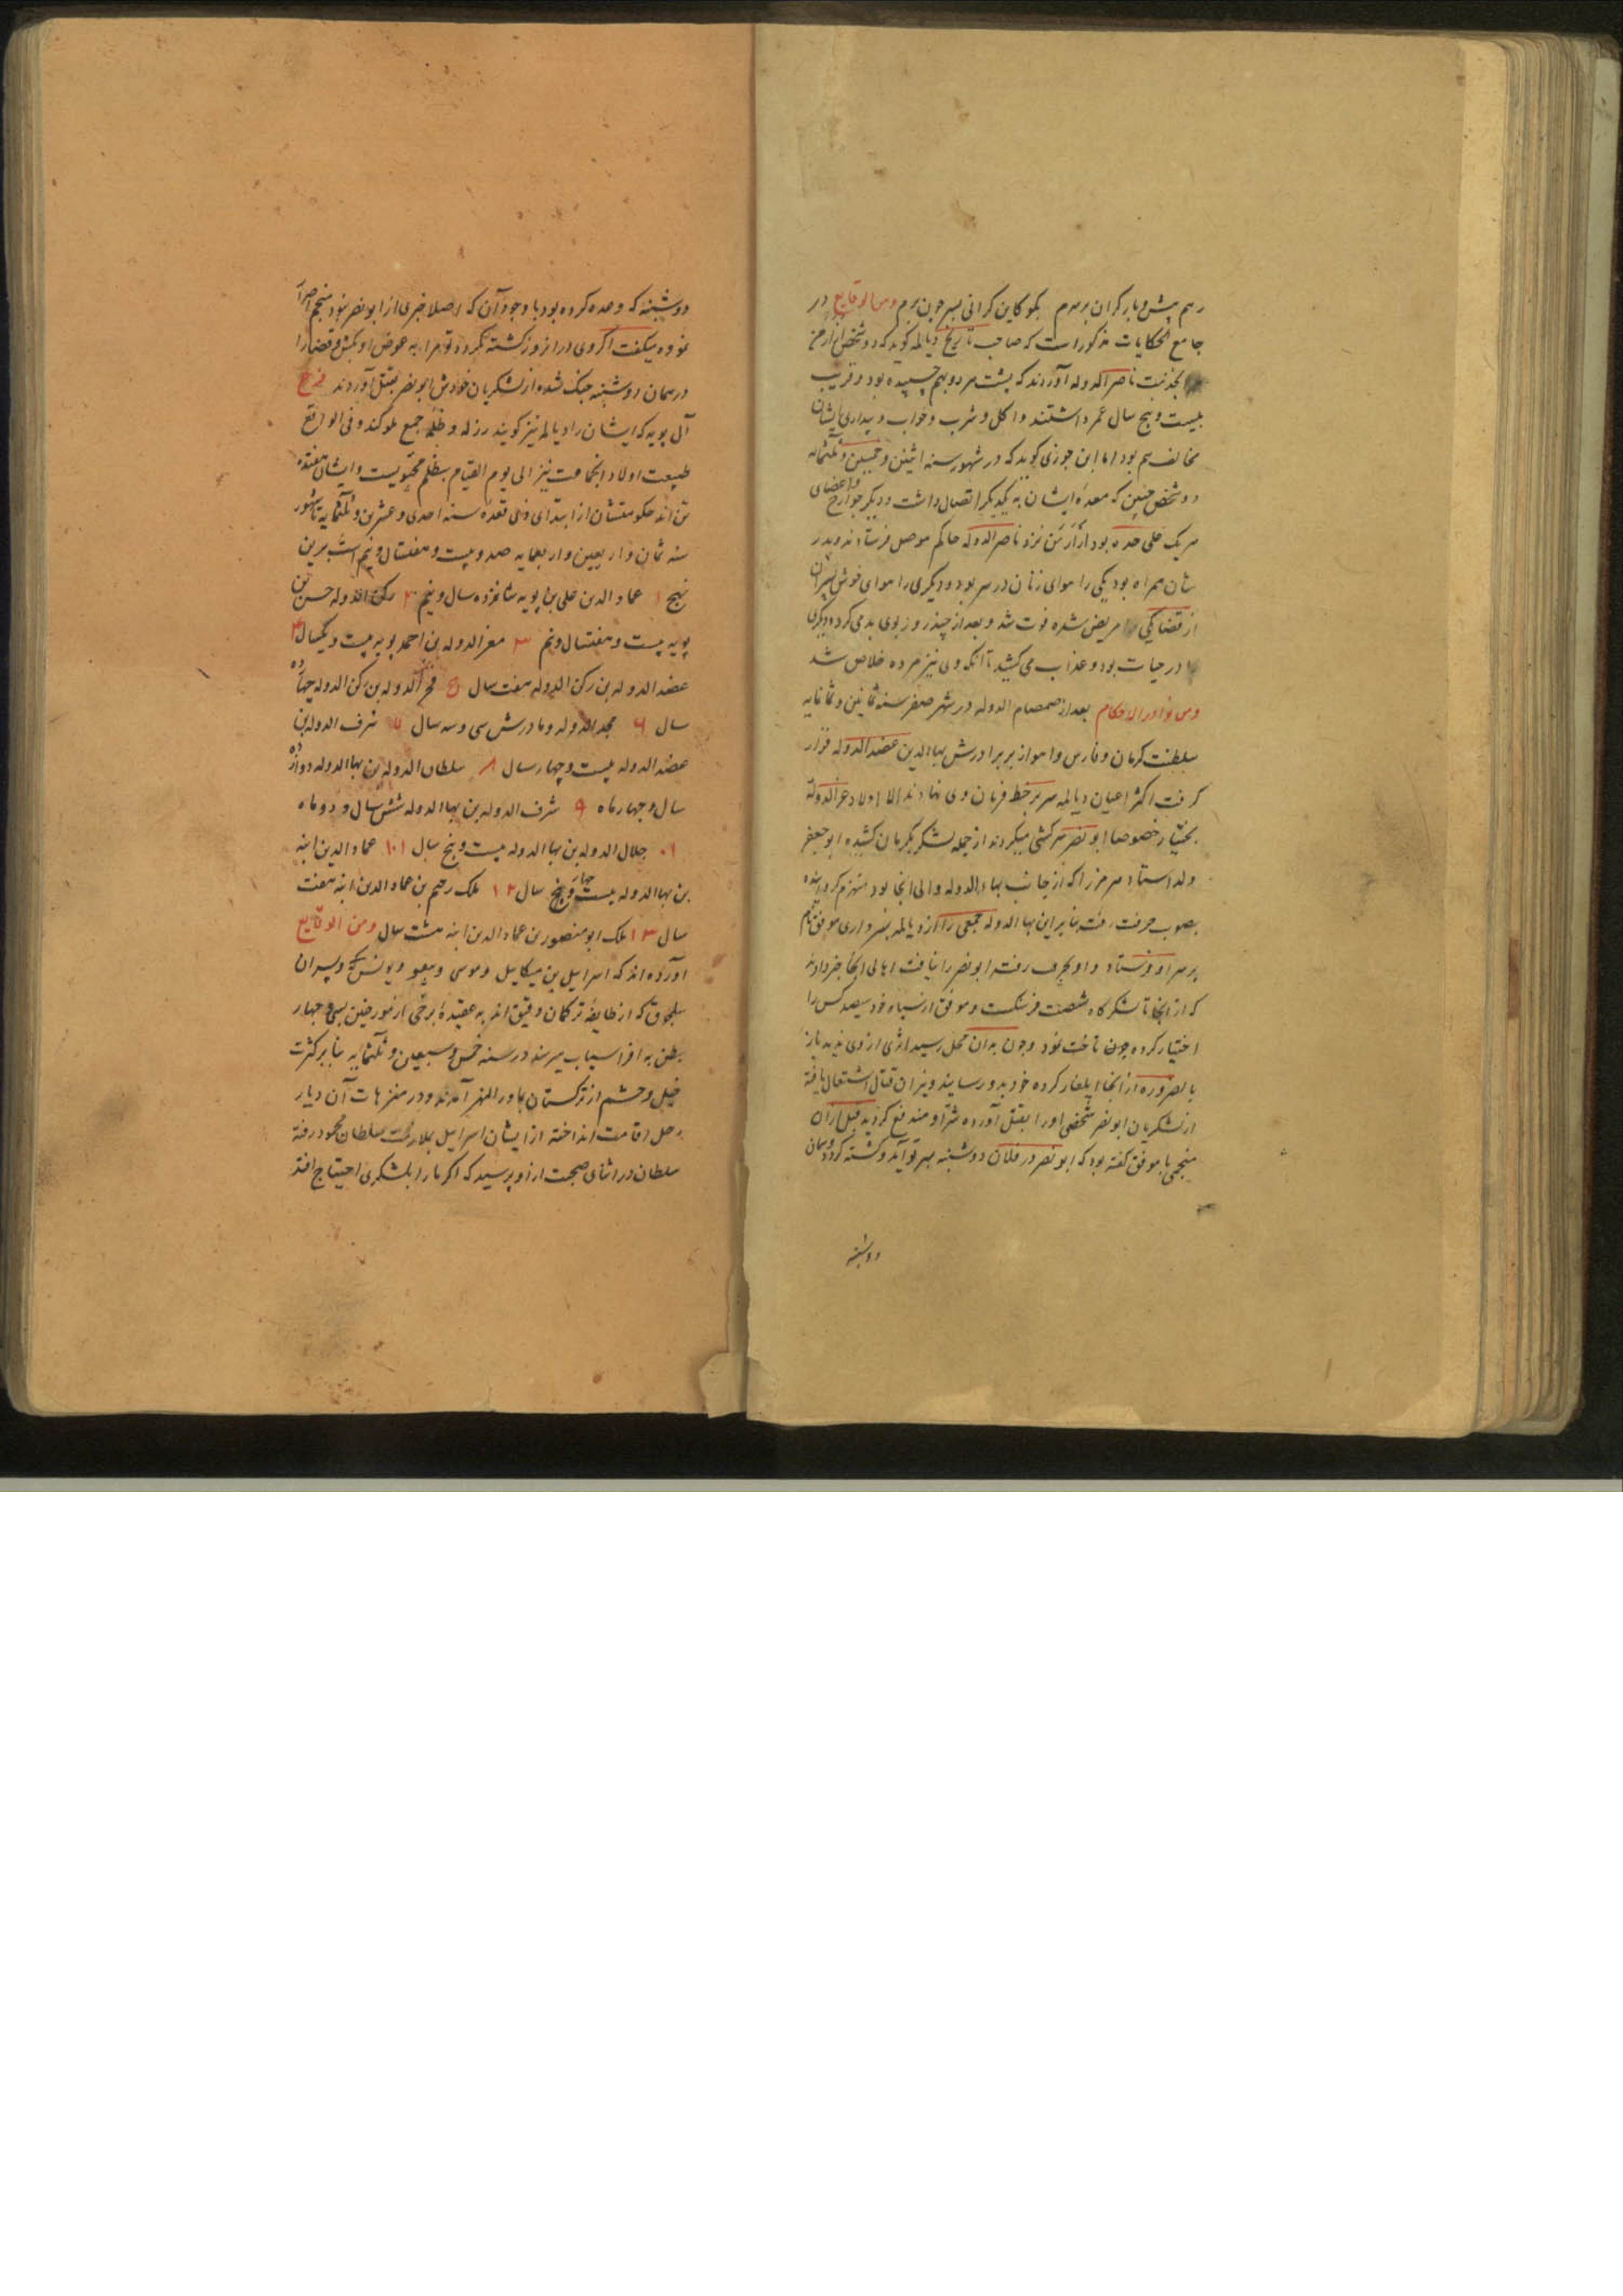 رهم پیش و بار کران برسرم بکو کاین کرانی بسر چون برم ومن الوقایع در
جامع الحکایات مذکور است که صاحب تاریخ دیالمه کوید که دو شخص از ارمن
بخدمت ناصر الدوله آوردند که پشت هر دو بهم چسپیده بود و قریب
بیست و پنج سال عمر داشتند و اکل و شرب و خواب و بیداری ایشان
مخالف هم بود اما ابن جوزی کوید که در شهور سنه اثنین و خمسین و ثلثمائه
دو شخص چنین که معده ایشان به یکدیکر اتصال داشت و دیکر جوارح و اعضای
هر یک علی حده بود از ارمن نزد ناصر الدوله حاکم موصل فرستادند و پدر
شان همراه بود یکی را هوای زنان در سر بود و دیکری را هوای خوش پسران
از قضا یکی مریض شده فوت شد و بعد از چند روز بوی بد می کرد و دیکری
در حیات بود و عذاب می کشید تا آنکه وی نیز مرده خلاص شد
ومن نوادر الاحکام بعد از صمصام الدوله در شهر صفر سنه ثمانین و ثمانمایه
سلطنت کرمان و فارس و اهواز بر برادرش بهاالدین عضد الدوله قرار
کرفت اکثر اعیان دیالمه سر بر خط فرمان وی نهادند الا اولاد عز الدوله
بختیار خصوصا ابو نصر سرکشی میکردند از جمله لشکر بکرمان کشیده ابو جعفر
ولد استاد هرمز را که از جانب بهاء الدوله والی آنجا بود منهزم کردانیده
بصوب جرفت رفت بنابراین بهاالدوله جمعی را از دیالمه بسرداری موفق نام
بر سر او فرستاد و او بجرفت رفته ابو نصر را نیافت اهالی آنجا خبر دادند
که از آنجا تا لشکرکاه شصت فرسنکست و موفق از سپاه خود سیصد کس را
اختیار کرده چون تاخت نمود و چون بدان محل رسید اثری از وی ندید باز
بالضروره از آنجا ایلغار کرده خود بدو رسانید و نیران قتال اشتعال یافته
از لشکریان ابو نصر شخصی او را بقتل آورده شر او مندفع کردید قبل از آن
منجمی با موفق کفته بود که ابو نصر در فلان دوشنبه بسر تو آید و کشته کردد و همان
دوشنبه
دوشنبه که وعده کرده بود با وجود آن که اصلا خبری از ابو نصر نبود منجم اصرار
نموده میکفت اکر وی در آنروز کشته نکردد تو مرا به عوض او بکش و قضا را
در همان دوشنبه جنک شده از لشکریان خودش ابو نصر بقتل آوردند فرع
آل بویه که ایشان را دیالمه نیز کویند رزله و ظلمه جمیع ملوکند و فی الواقع
طبیعت اولاد آنجماعت نیز الی یوم القیام بظلم مجبولیست و ایشان هفده
تن اند حکومتشان از ابتدای ذی قعده سنه احدی و عشرین و ثلثمایه تا شهور
سنه ثمان و اربعین و اربعمایه صد و بیست و هفتسال و نیم است برین
نهج ۱ عماد الدین علی بن بویه شانزده سال و نیم ۲ رکن الدوله حسن بن
بویه بیست و هفتسال و نیم ۳ معز الدوله بن احمد بویه بیست و یکسال ۴
عضد الدوله بن رکن الدوله هفت سال ۵ فخر الدوله بن رکن الدوله چهارده
سال ۶ مجد الدوله و مادرش سی و سه سال ۷ شرف الدوله بن
عضد الدوله بیست و چهار سال ۸ سلطان الدوله بن بهاالدوله دوازده
سال و چهار ماه ۹ شرف الدوله بن بهاالدوله شش سال و دو ماه
۱۰ جلال الدوله بن بهاالدوله بیست و پنج سال ۱۱ عماد الدین ابنه
بن بهاالدوله بیست و پنج چهار سال ۱۲ ملک رحیم بن عماد الدین ابنه هفت
سال ۱۳ ملک ابو منصور بن عماد الدین ابنه هشت سال ومن الوقایع
آورده اند که اسراییل بن میکاییل و موسی و بیغو و یونس بیک و پسران
سلجوق که از طایفه ترکمان و قنیق اند به عقیده برخی از مورخین بسی و چهار
بطن به افراسیاب میرسند در سنه خمس و سبعین و ثلثمایه بنابر کثرت
خیل و حشم از ترکستان بماورالنهر آمدند و در متنزهات آن دیار
رحل اقامت انداخته از ایشان اسراییل بملازمت سلطان محمود رفته
سلطان در اثنای صحبت از او پرسید که اکر ما را بلشکری احتیاج افتد